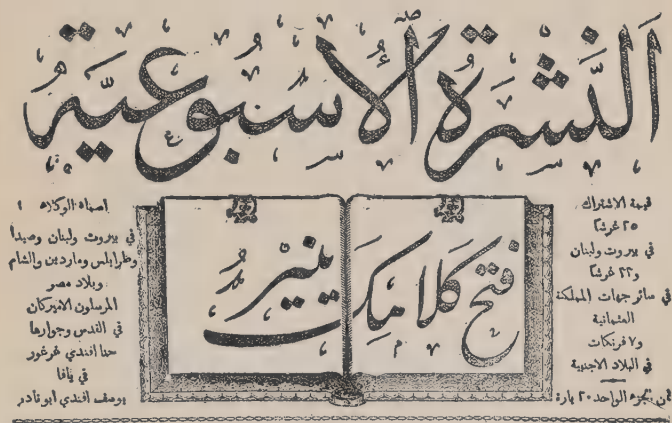 النشرة الاسبوعية
قيمة الاشتراك
٢٥ غرشًا
في بيروت ولبنان
و٢٢ غرشًا
في سائر جهات المملكة
العثمانية
و٧ فرنكات
في البلاد الاجنبية
ثمن الجزء الواحد ٢٠ بارة
فتح كلامك ينير
اسماء الوكلاء
في بيروت ولبنان وصيدا
وطرابلس وماردين والشام
وبلاد مصر
المرسلون الاميركان
في القدس وجوارها
حنا افندي غرغور
في يافا
يوسف افندي ابو نادر